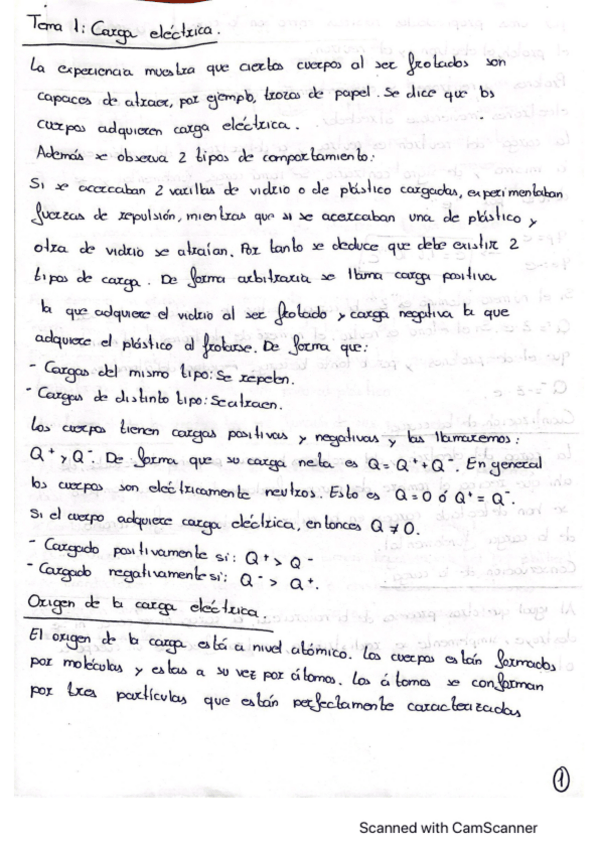 Tema 1: Carga eléctrica.
La experiencia muestra que ciertos cuerpos al ser frotados son
capaces de atraer, por ejemplo, trozos de papel. Se dice que los
cuerpos adquieren carga eléctrica.
Además se observa 2 tipos de comportamiento:
Si se acercaban 2 varillas de vidrio o de plástico cargadas, experimentaban
fuerzas de repulsión, mientras que si se acercaban una de plástico y
otra de vidrio se atraían. Por tanto se deduce que debe existir 2
tipos de carga. De forma arbitraria se llama carga positiva
la que adquiere el vidrio al ser frotado y carga negativa la que
adquiere el plástico al frotarse. De forma que:
- Cargas del mismo tipo: Se repelen.
- Cargas de distinto tipo: Se atraen.
Los cuerpos tienen cargas positivas y negativas y las llamaremos:
Q⁺ y Q⁻. De forma que su carga neta es Q = Q⁺ + Q⁻. En general
los cuerpos son eléctricamente neutros. Esto es Q = 0 ó Q⁺ = Q⁻.
Si el cuerpo adquiere carga eléctrica, entonces Q ≠ 0.
- Cargado positivamente si: Q⁺ > Q⁻
- Cargado negativamente si: Q⁻ > Q⁺.
Origen de la carga eléctrica.
El origen de la carga está a nivel atómico. Los cuerpos están formados
por moléculas y estas a su vez por átomos. Los átomos se conforman
por tres partículas que están perfectamente caracterizadas
1
Scanned with CamScanner